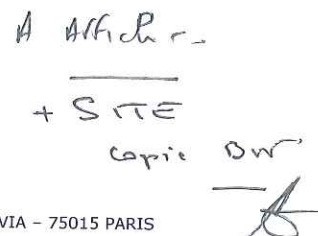 A Afficher
+ SITE
copie
VIA – 75015 PARIS